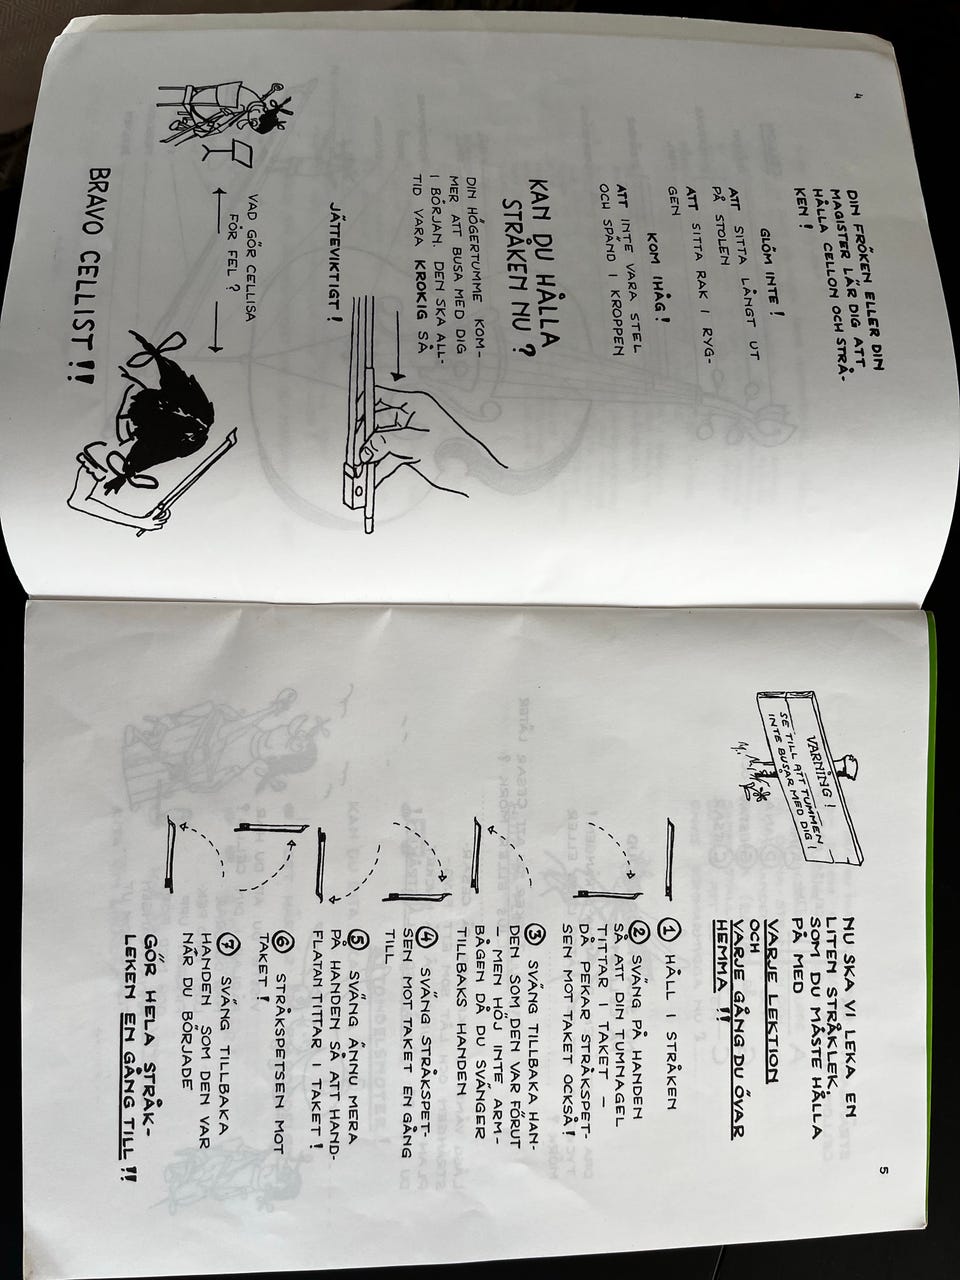 4
DIN FRÖKEN ELLER DIN
MAGISTER LÄR DIG ATT
HÅLLA CELLON OCH STRÅ-
KEN !
GLÖM INTE !
ATT SITTA LÅNGT UT
PÅ STOLEN
ATT SITTA RAK I RYG-
GEN
KOM IHÅG !
ATT INTE VARA STEL
OCH SPÄND I KROPPEN
KAN DU HÅLLA
STRÅKEN NU ?
DIN HÖGERTUMME KOM-
MER ATT BUSA MED DIG
I BÖRJAN. DEN SKA ALL-
TID VARA KROKIG SÅ
JÄTTEVIKTIGT !
VAD GÖR CELLISA
FÖR FEL ?
BRAVO CELLIST !!
5
VARNING !
SE TILL ATT TUMMEN
INTE BUSAR MED DIG !
NU SKA VI LEKA EN
LITEN STRÅKLEK,
SOM DU MÅSTE HÅLLA
PÅ MED
VARJE LEKTION
OCH
VARJE GÅNG DU ÖVAR
HEMMA !!
1 HÅLL I STRÅKEN
2 SVÄNG PÅ HANDEN
SÅ ATT DIN TUMNAGEL
TITTAR I TAKET –
DÅ PEKAR STRÅKSPET-
SEN MOT TAKET OCKSÅ !
3 SVÄNG TILLBAKA HAN-
DEN SOM DEN VAR FÖRUT
– MEN HÖJ INTE ARM-
BÅGEN DÅ DU SVÄNGER
TILLBAKS HANDEN
4 SVÄNG STRÅKSPET-
SEN MOT TAKET EN GÅNG
TILL
5 SVÄNG ÄNNU MERA
PÅ HANDEN SÅ ATT HAND-
FLATAN TITTAR I TAKET !
6 STRÅKSPETSEN MOT
TAKET !
7 SVÄNG TILLBAKA
HANDEN SOM DEN VAR
NÄR DU BÖRJADE
GÖR HELA STRÅK-
LEKEN EN GÅNG TILL !!